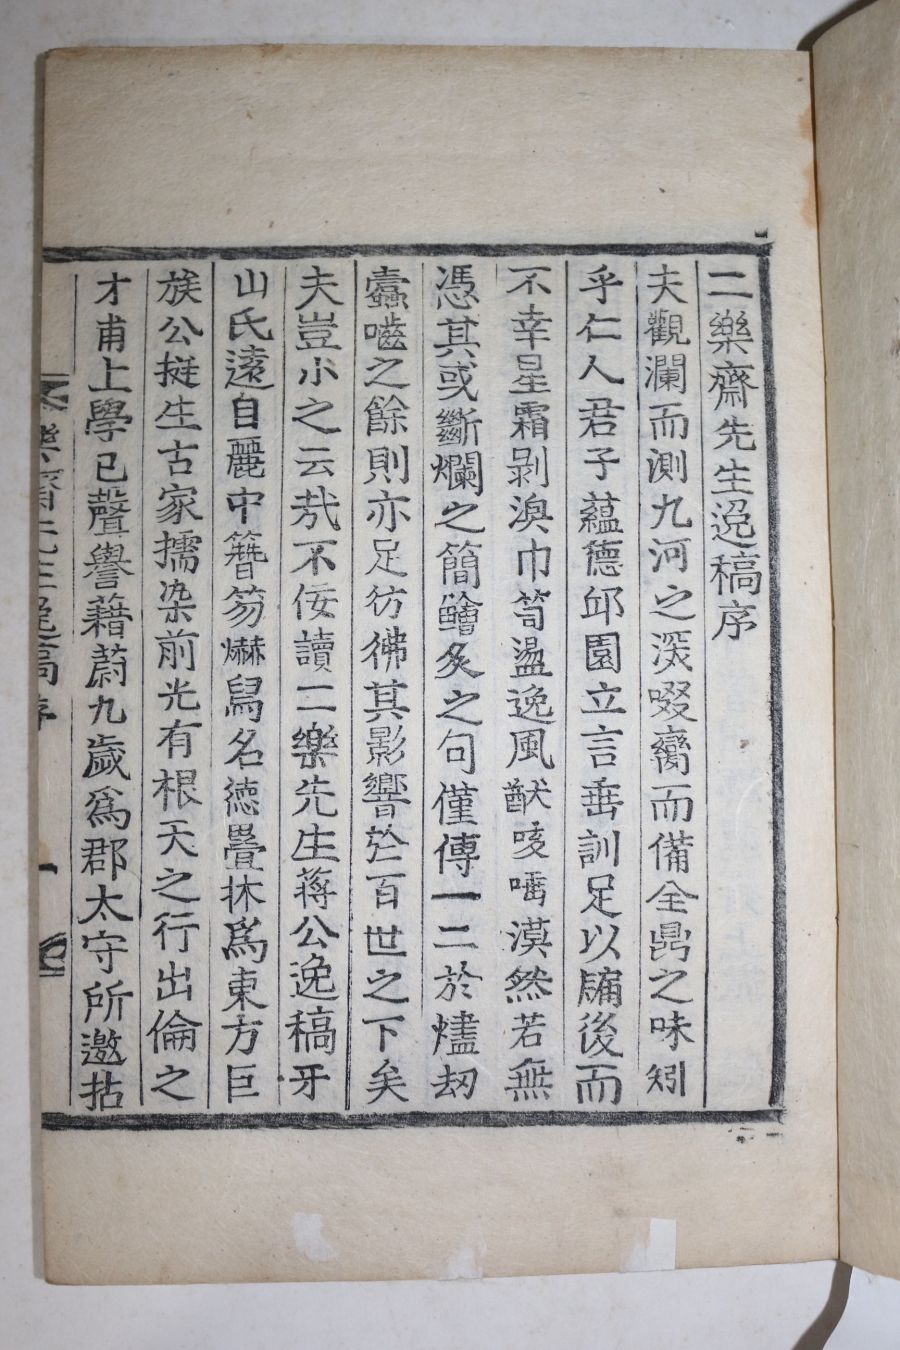 二樂齋先生逸稿序
夫觀瀾而測九河之深啜臠而備全鼎之味矧
乎仁人君子蘊德邱園立言垂訓足以牖後而
不幸星霜剥渙巾笥盪逸風猷咳唾漠然若無
憑其或斷爛之簡鱠炙之句僅傳一二於燼刼
蠹嚙之餘則亦足彷彿其影響於百世之下矣
夫豈小之云哉不佞讀二樂先生蔣公逸稿牙
山氏遠自麗中簪笏爀舃名德疊休爲東方巨
族公挺生古家擩染前光有根天之行出倫之
才甫上學已聲譽藉蔚九歲爲郡太守所邀拈
樂齋先生逸稿序 一